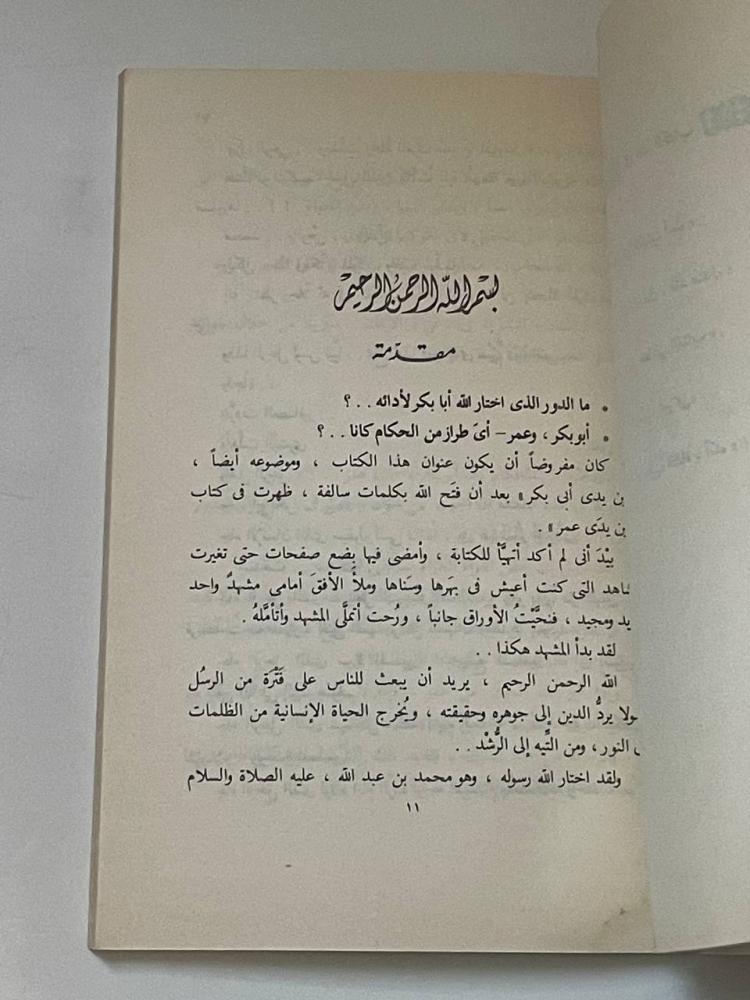 بسم الله الرحمن الرحيم
مقدمة
• ما الدور الذى اختار الله أبا بكر لأدائه . . ؟
• أبو بكر ، وعمر – أىَ طراز من الحكام كانا . . ؟
كان مفروضاً أن يكون عنوان هذا الكتاب ، وموضوعه أيضاً ،
يدى أبى بكر » بعد أن فتَح الله بكلمات سالفة ، ظهرت فى كتاب
يدَى عمر » .
بيْدَ أنى لم أكد أتهيَّأ للكتابة ، وأمضى فيها بِضع صفحات حتى تغيرت
التى كنت أعيش فى بَهَرها وسَناها وملأَ الأفقَ أمامى مشهدٌ واحد
ومجيد ، فنحَّيْتُ الأوراق جانباً ، ورُحت أتملَّى المشهد وأتأمَّلهُ .
لقد بدأ المشهد هكذا . .
الله الرحمن الرحيم ، يريد أن يبعث للناس على فَتْرَة من الرسُل
يردُّ الدين إلى جوهره وحقيقته ، ويُخرج الحياة الإنسانية من الظلمات
النور ، ومن التِّيه إلى الرُّشْد . .
ولقد اختار الله رسوله ، وهو محمد بن عبد الله ، عليه الصلاة والسلام
١١